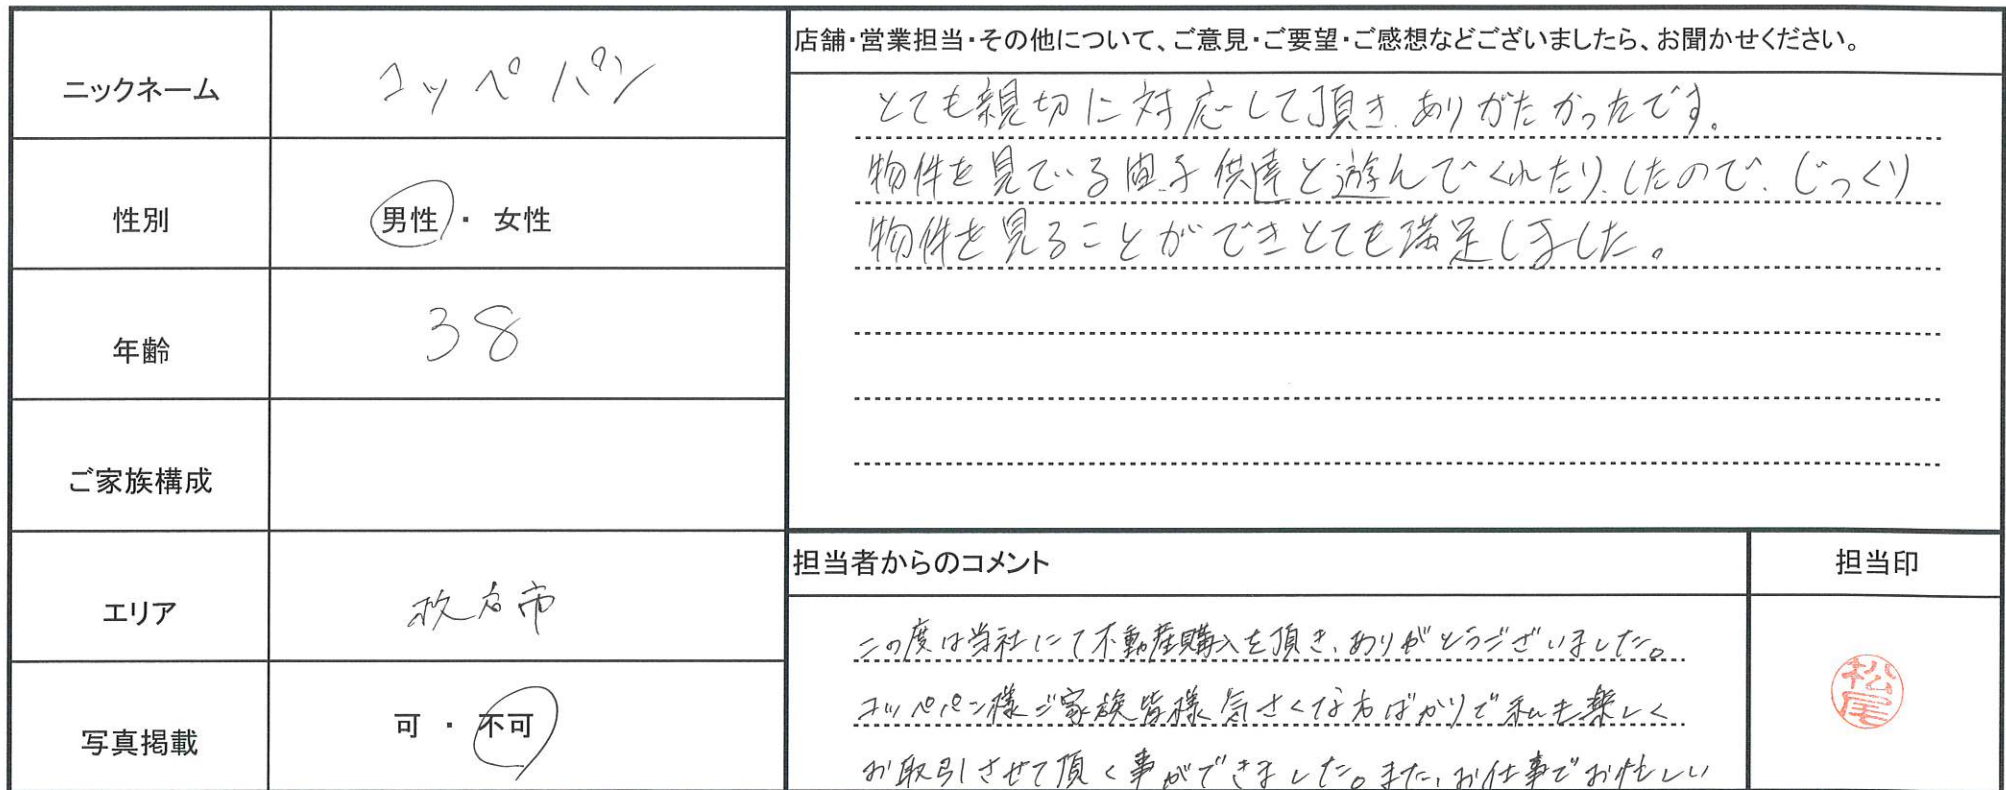 ニックネーム
コッペパン
性別
男性・女性
年齢
38
ご家族構成
エリア
枚方市
写真掲載
可・不可
店舗・営業担当・その他について、ご意見・ご要望・ご感想などございましたら、お聞かせください。
とても親切に対応して頂き、ありがたかったです。
物件を見ている間、子供達と遊んでくれたり、したので、じっくり
物件を見ることができとても満足しました。
担当者からのコメント
この度は当社にて不動産購入を頂き、ありがとうございました。
コッペパン様ご家族皆様気さくな方ばかりで私も楽しく
お取引させて頂く事ができました。また、お仕事でお忙しい
担当印
松尾